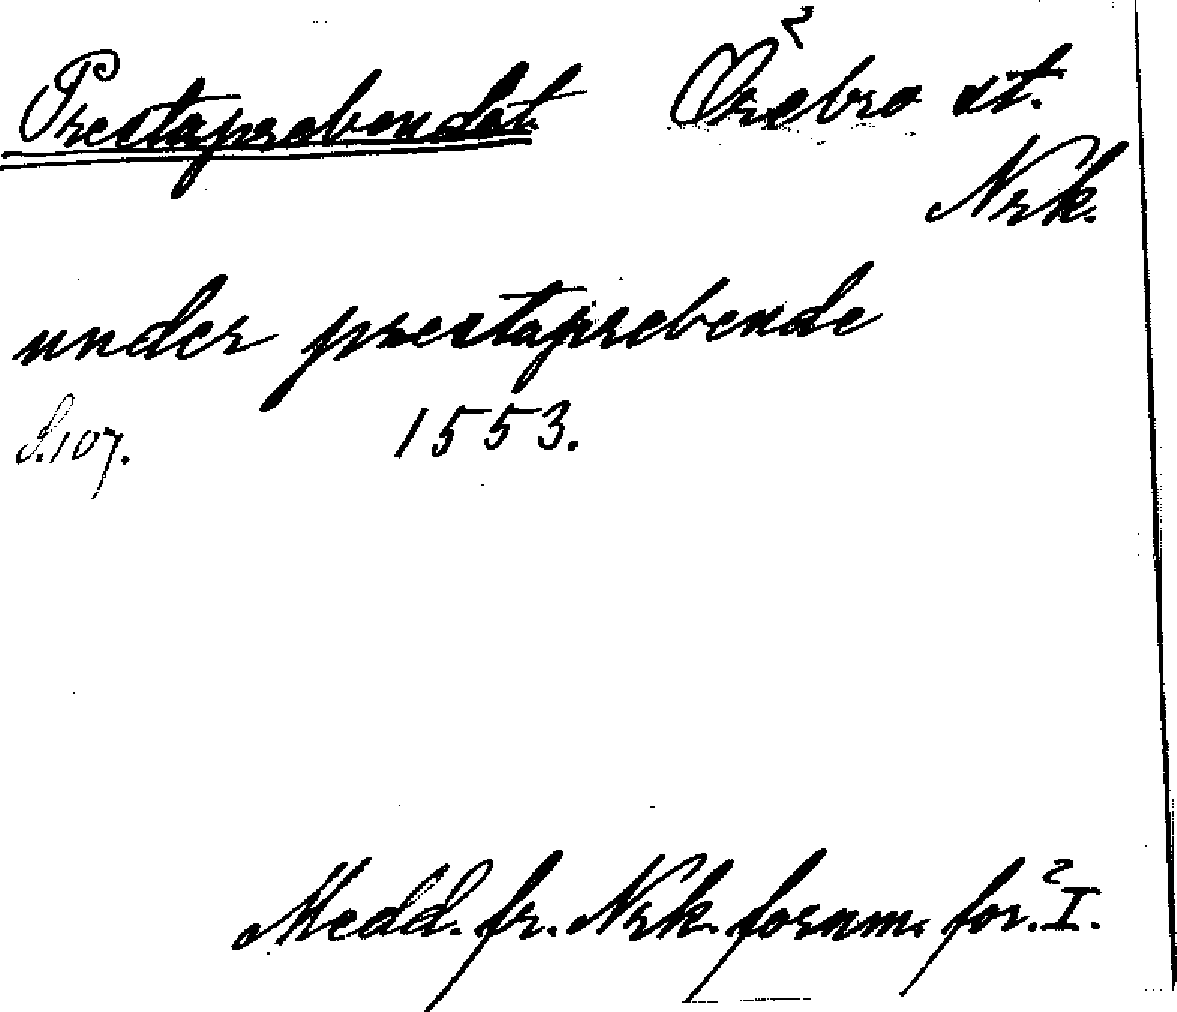 Prestaprebendet. Örebro st.
Nrk.
under prestaprebende
S. 107. 1553.
Medd. fr. Nrk. fornm. för. I.